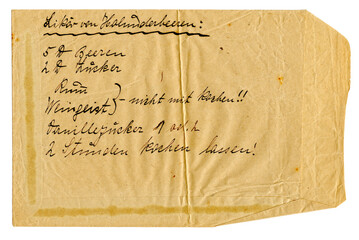 Likör von Holunderbeeren:
5 ℔ Beeren
2 ℔ Zucker
Rum
Weingeist } - nicht mit kochen!!
Vanillezucker 1 od. 2
2 Stunden kochen lassen!